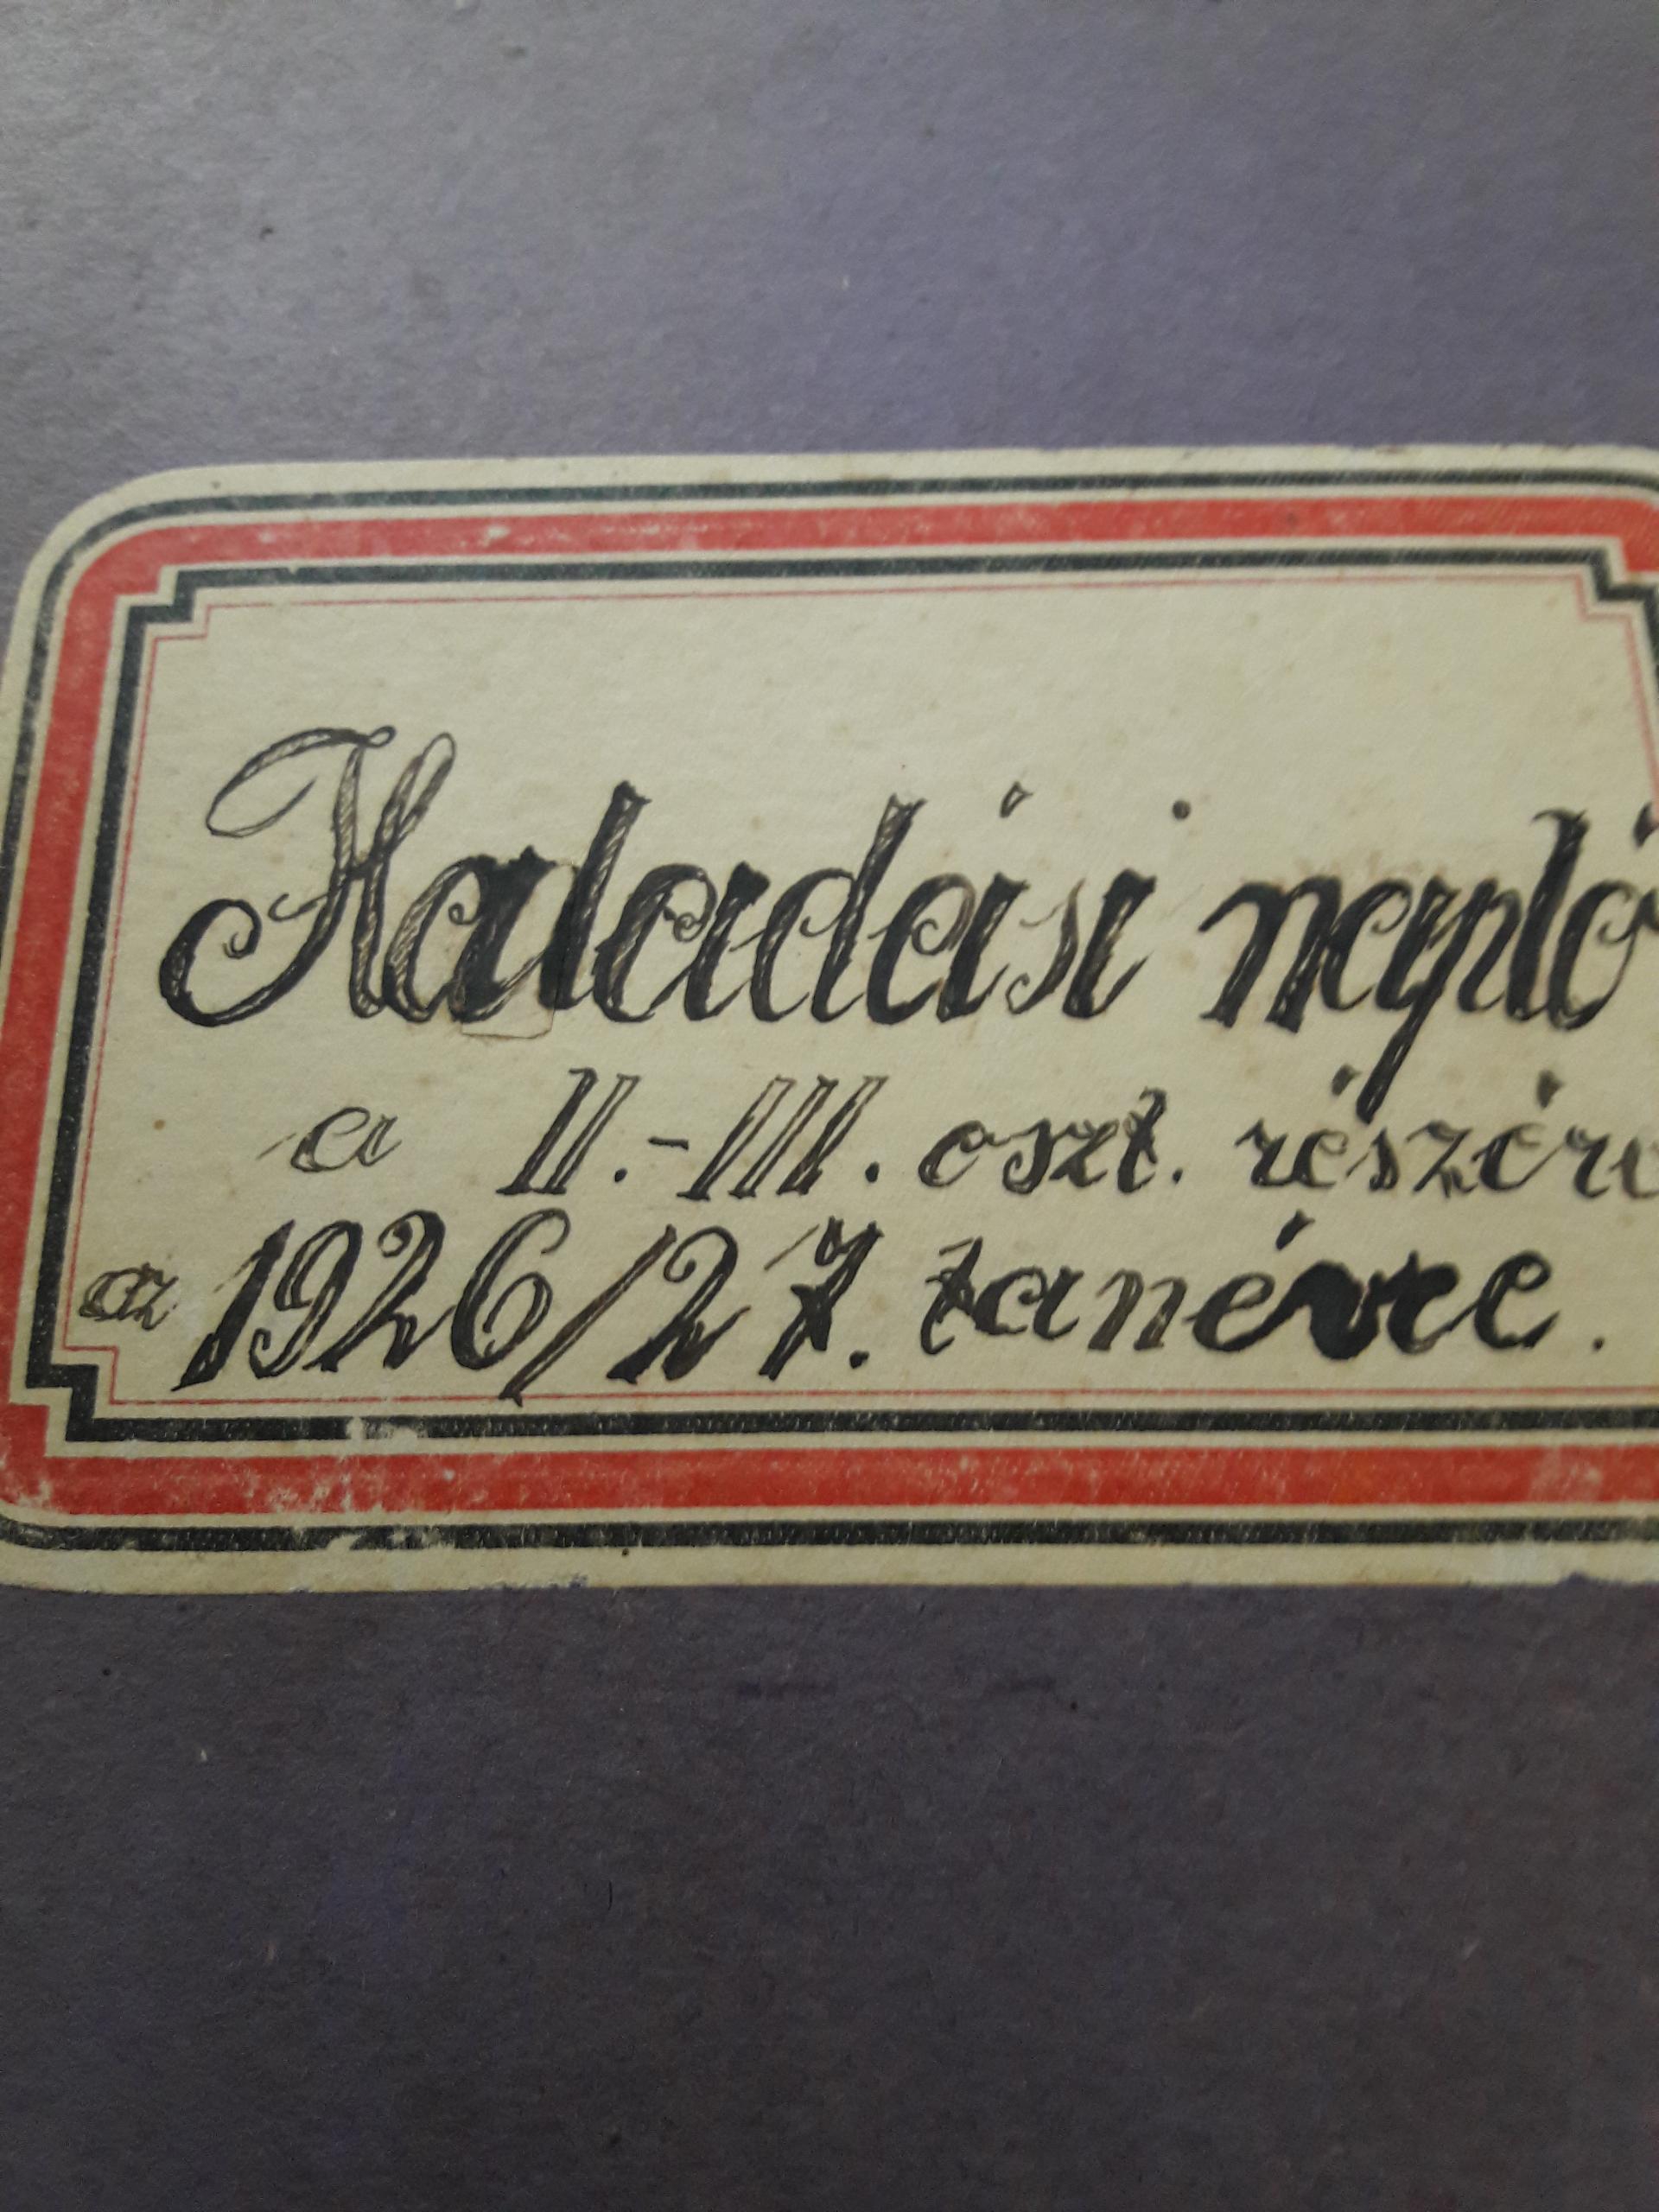 Haladási napló
a II.-III. oszt. részére
az 1926/27. tanévre.